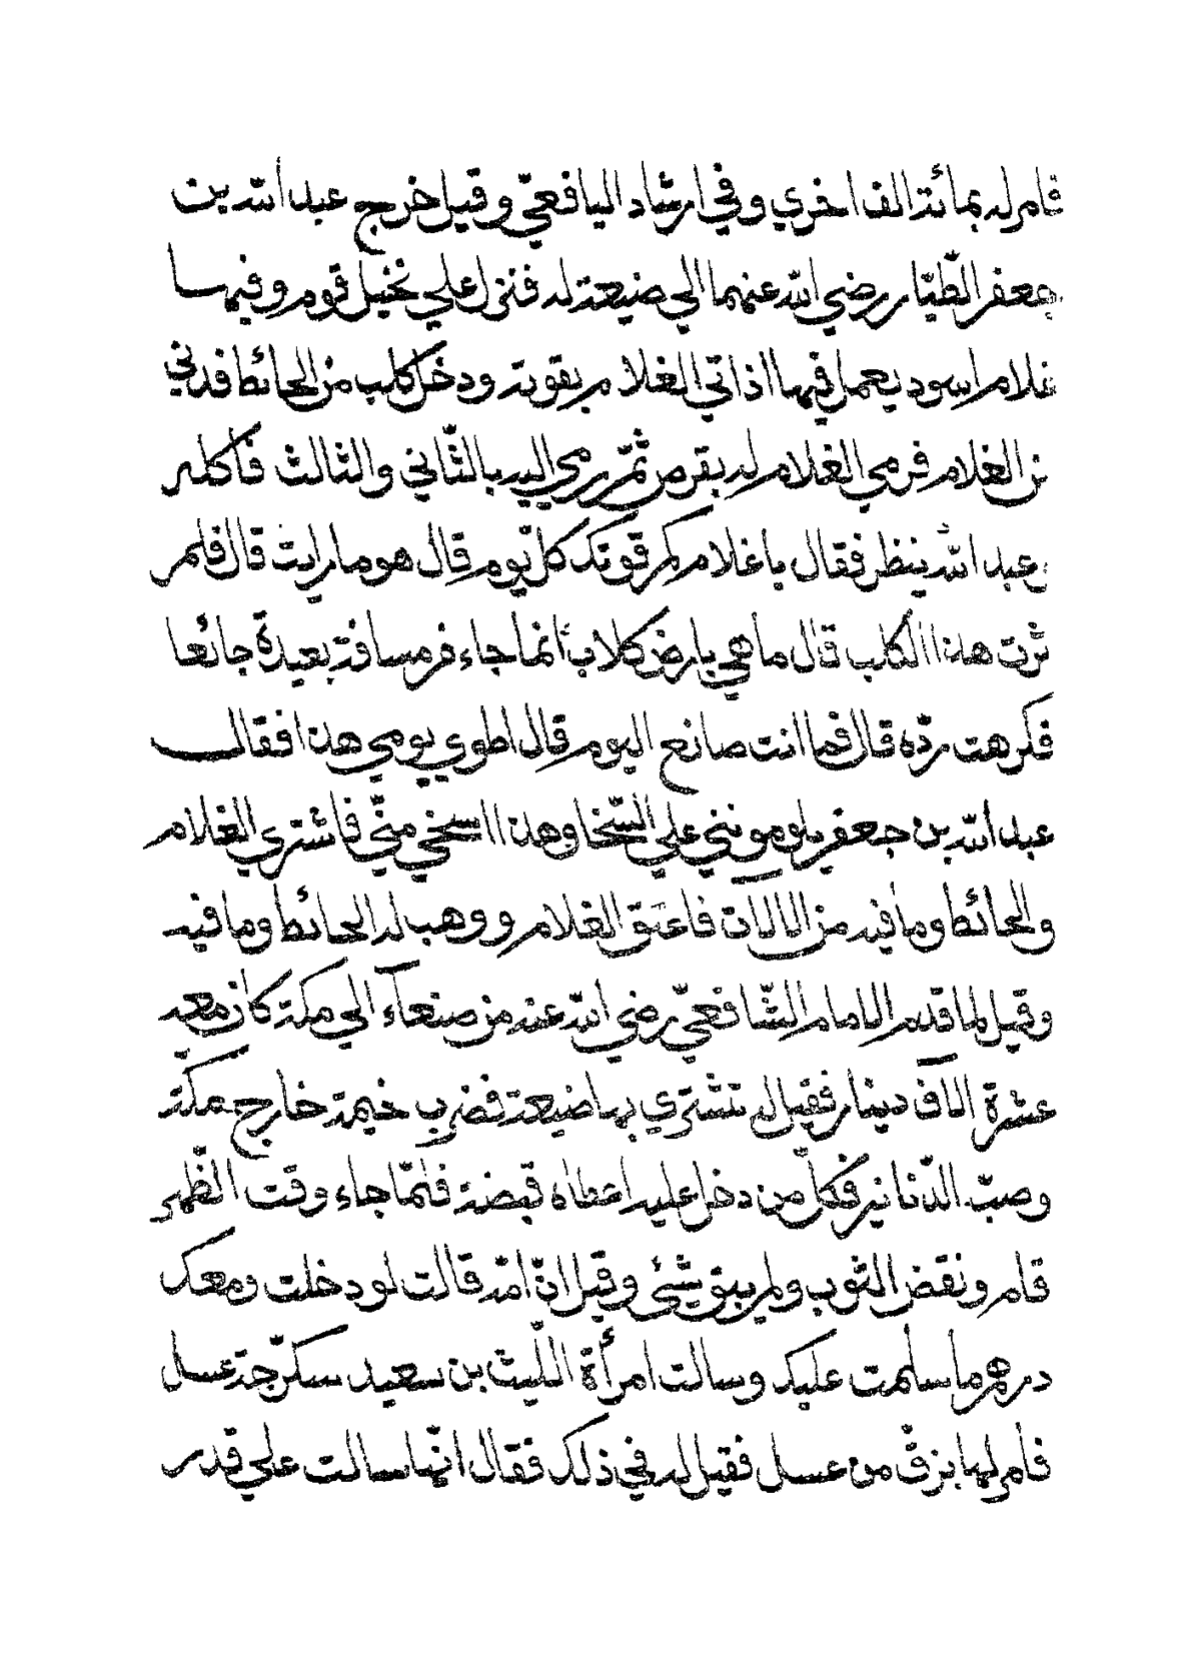 فامر له بمائة الف اخري وفي ارشاد اليافعيّ وقيل خرج عبد الله بن
جعفر الطّيّار رضي الله عنهما الي ضيعة له فنزل علي نخيل قوم وفيها
غلام اسود يعمل فيها اذ اتي الغلام بقوته ودخل كلب من الحائط فدني
من الغلام فرمي الغلام له بقرص ثمّ رمي اليه بالثّاني والثالث فاكله
عبد الله ينظر فقال يا غلام كم قوتك كلّ يوم قال هو ما رايت قال فلم
ثرت هذا الكلب قال ما هي بارض كلاب انما جاء من مسافة بعيدة جائعا
فكرهت ردّه قال فما انت صانع اليوم قال اطوي يومي هذا فقال
عبد الله بن جعفر يلومونني علي السّخا وهذا اسخي منّي فاشتري الغلام
والحائط وما فيه من الالات فاعتق الغلام ووهب له الحائط وما فيه
وقيل لما قدم الامام الشّافعيّ رضي الله عنه من صنعآء الي مكة كان معه
عشرة الاف دينار فقيل له تشتري بها ضيعة فضرب خيمة خارج مكة
وصبّ الدّنانير فكلّ من دخل عليه اعطاه قبضة فلمّا جاء وقت الظّهر
قام ونقض الثوب ولم يبق شئي وقيل انّ امّه قالت لو دخلت ومعك
درهم ما سلمت عليك وسالت امرأة اللّيث بن سعيد سكرّجة عسل
فامر لها بزقّ من عسل فقيل له في ذلك فقال انّها سالت علي قدر